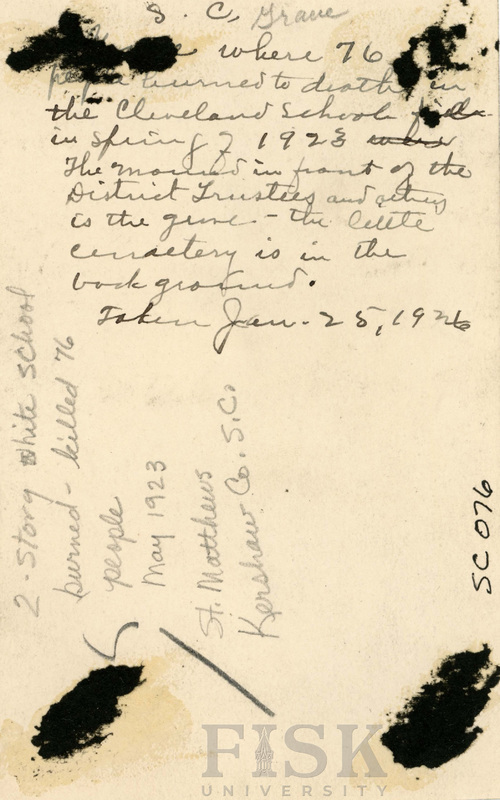 S. C. Grave
where 76
people burned to death in
the Cleveland School
in Spring of 1923
The mound in front of the
District Trustees and others
is the grave - the little
cemetery is in the
back ground.
Taken Jan. 25, 1926
2-story white school
burned - killed 76
people
May 1923
St. Matthews
Kershaw Co. S.C.
SC 076
FISK
UNIVERSITY